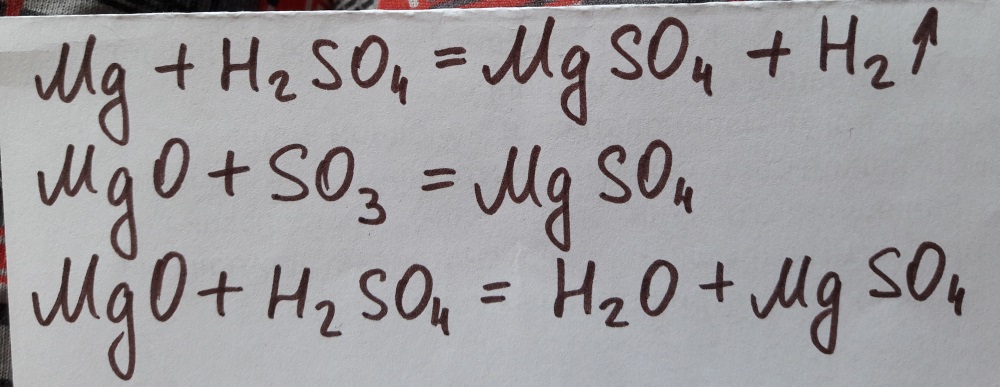 Mg + H₂SO₄ = MgSO₄ + H₂↑
MgO + SO₃ = MgSO₄
MgO + H₂SO₄ = H₂O + MgSO₄